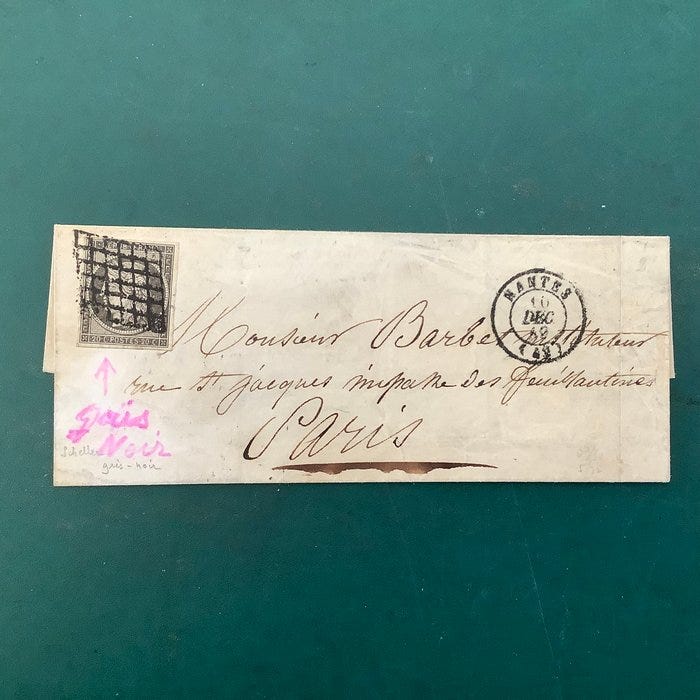 20 C POSTES 20 C
NANTES
10
DEC
49
(42)
Monsieur Barbet
rue St. jacques impasse des feuillantines
Paris
gris
Noir
gris-noir